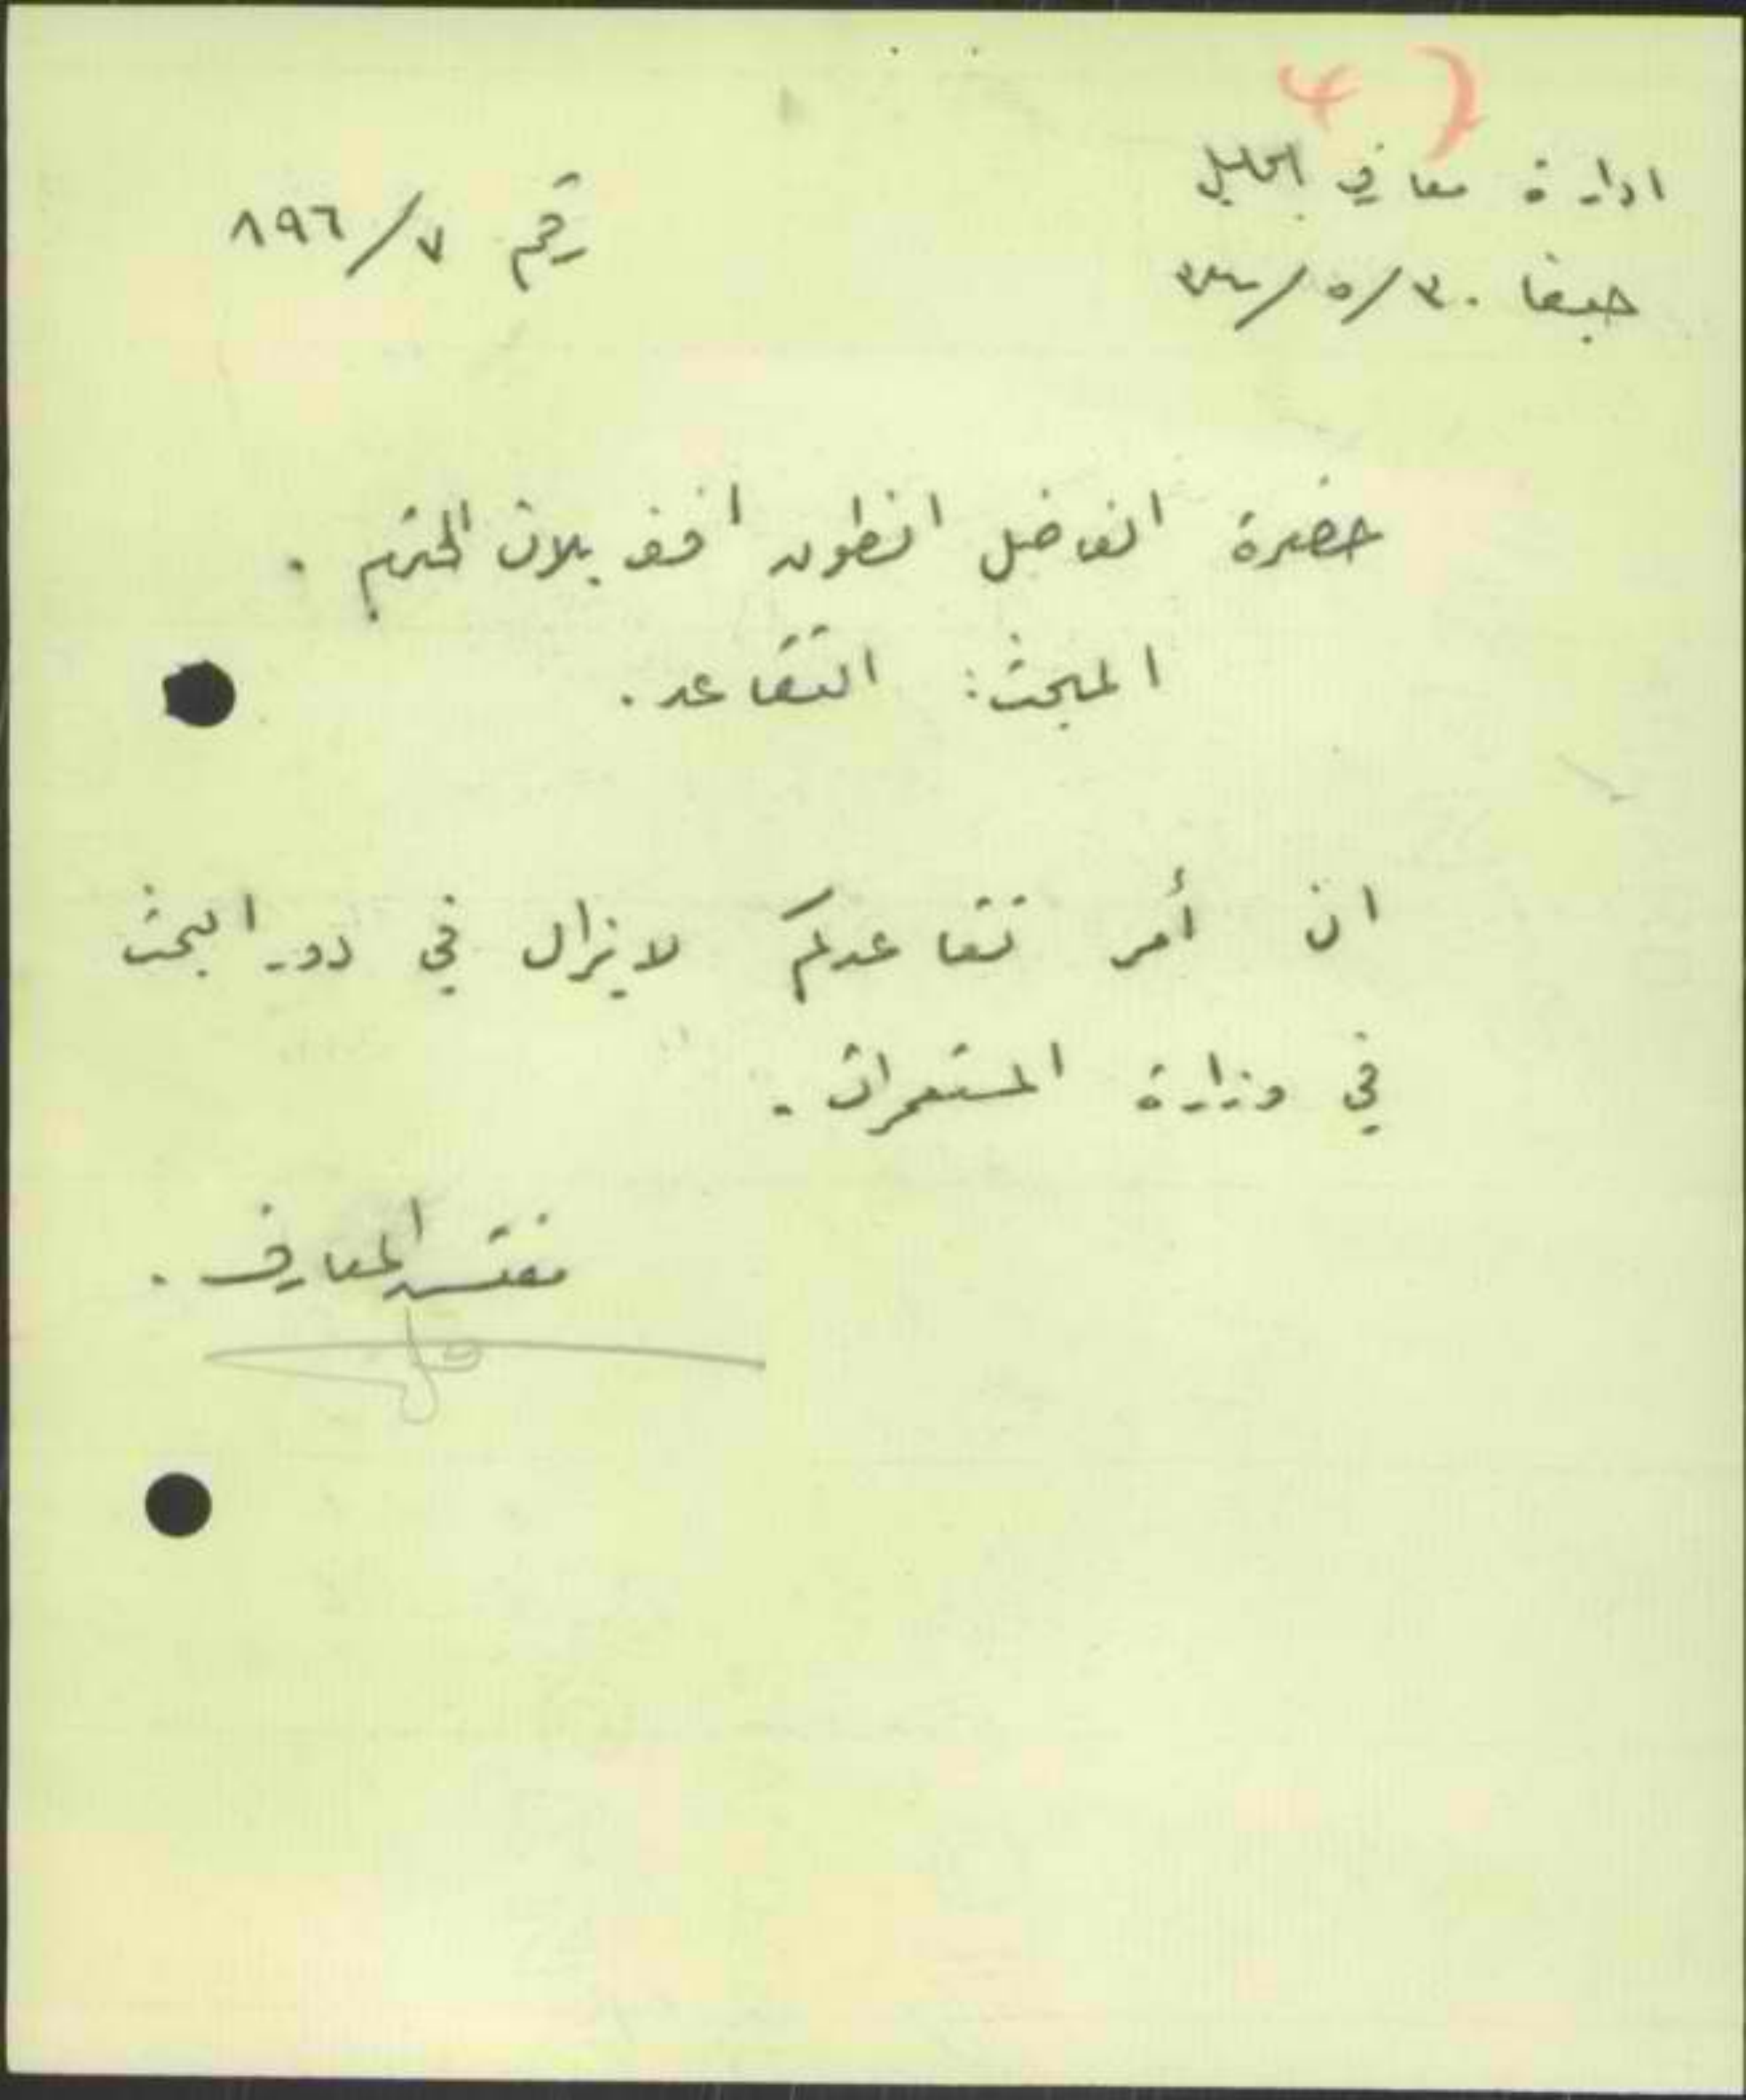 ادارة معارف الجليل
حيفا ٣٠/٥/
رقم ٧/٨٩٦
حضرة الفاضل انطون افندي بلان المحترم .
المبحث: التقاعد .
ان أمر تقاعدكم لا يزال في دور البحث
في وزارة المستعمرات .
مفتش المعارف .